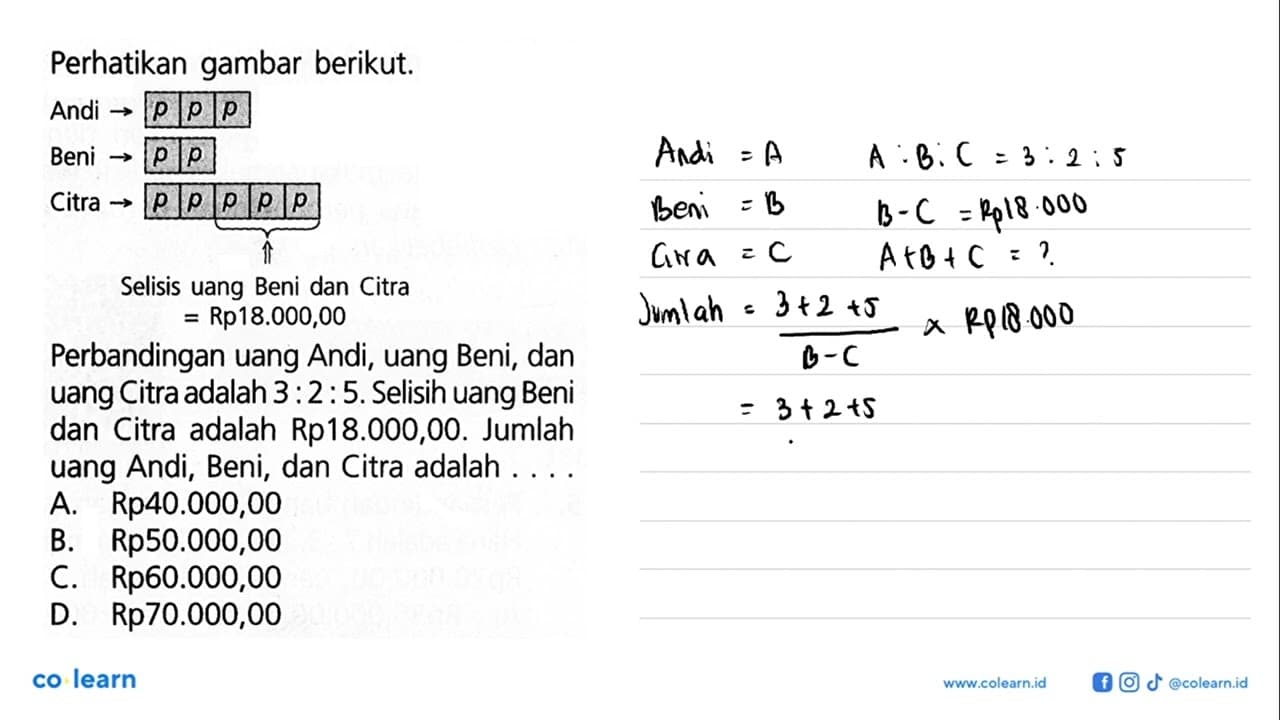 Perhatikan gambar berikut.
Andi → p p p
Beni → p p
Citra → p p p p p
Selisis uang Beni dan Citra
= Rp18.000,00
Perbandingan uang Andi, uang Beni, dan
uang Citra adalah 3 : 2 : 5. Selisih uang Beni
dan Citra adalah Rp18.000,00. Jumlah
uang Andi, Beni, dan Citra adalah . . . .
A. Rp40.000,00
B. Rp50.000,00
C. Rp60.000,00
D. Rp70.000,00
Andi = A
A : B : C = 3 : 2 : 5
Beni = B
B - C = Rp18.000
= C
A + B + C = ?
Jumlah = 3 + 2 + 5 / B - C × Rp18.000
= 3 + 2 + 5
co learn
www.colearn.id
@colearn.id